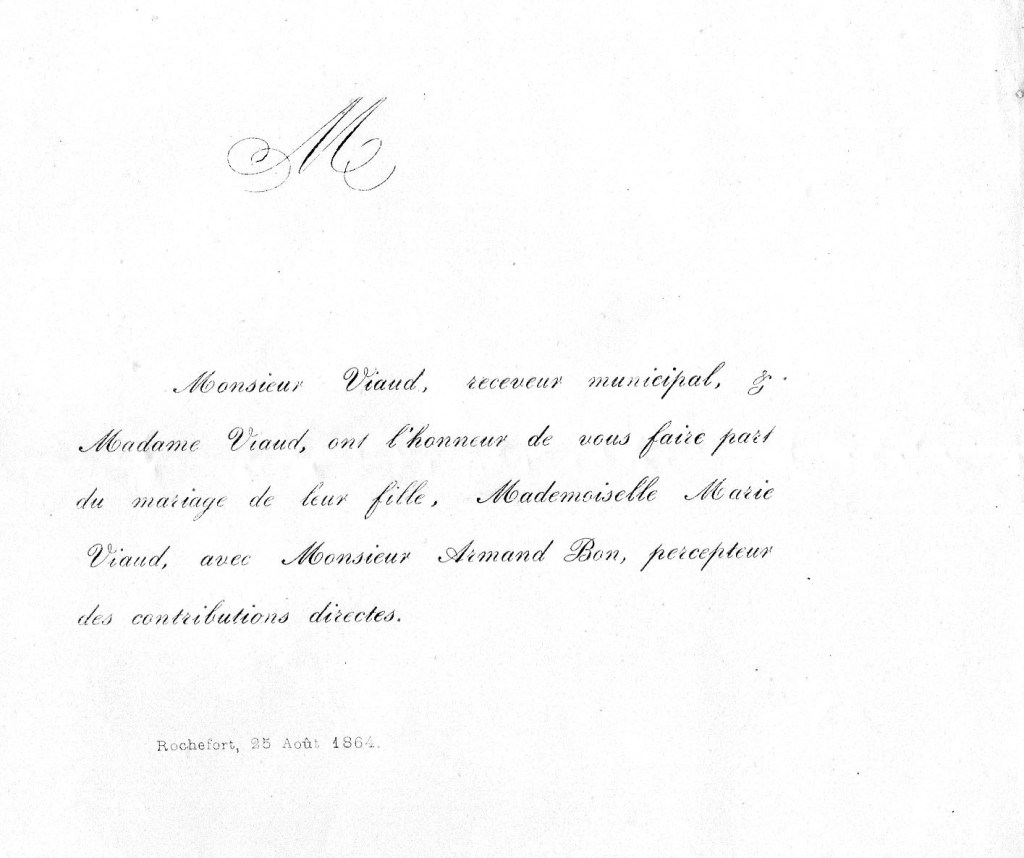 M
Monsieur Viaud, receveur municipal, &
Madame Viaud, ont l'honneur de vous faire part
du mariage de leur fille, Mademoiselle Marie
Viaud, avec Monsieur Armand Bon, percepteur
des contributions directes.
Rochefort, 25 Août 1864.